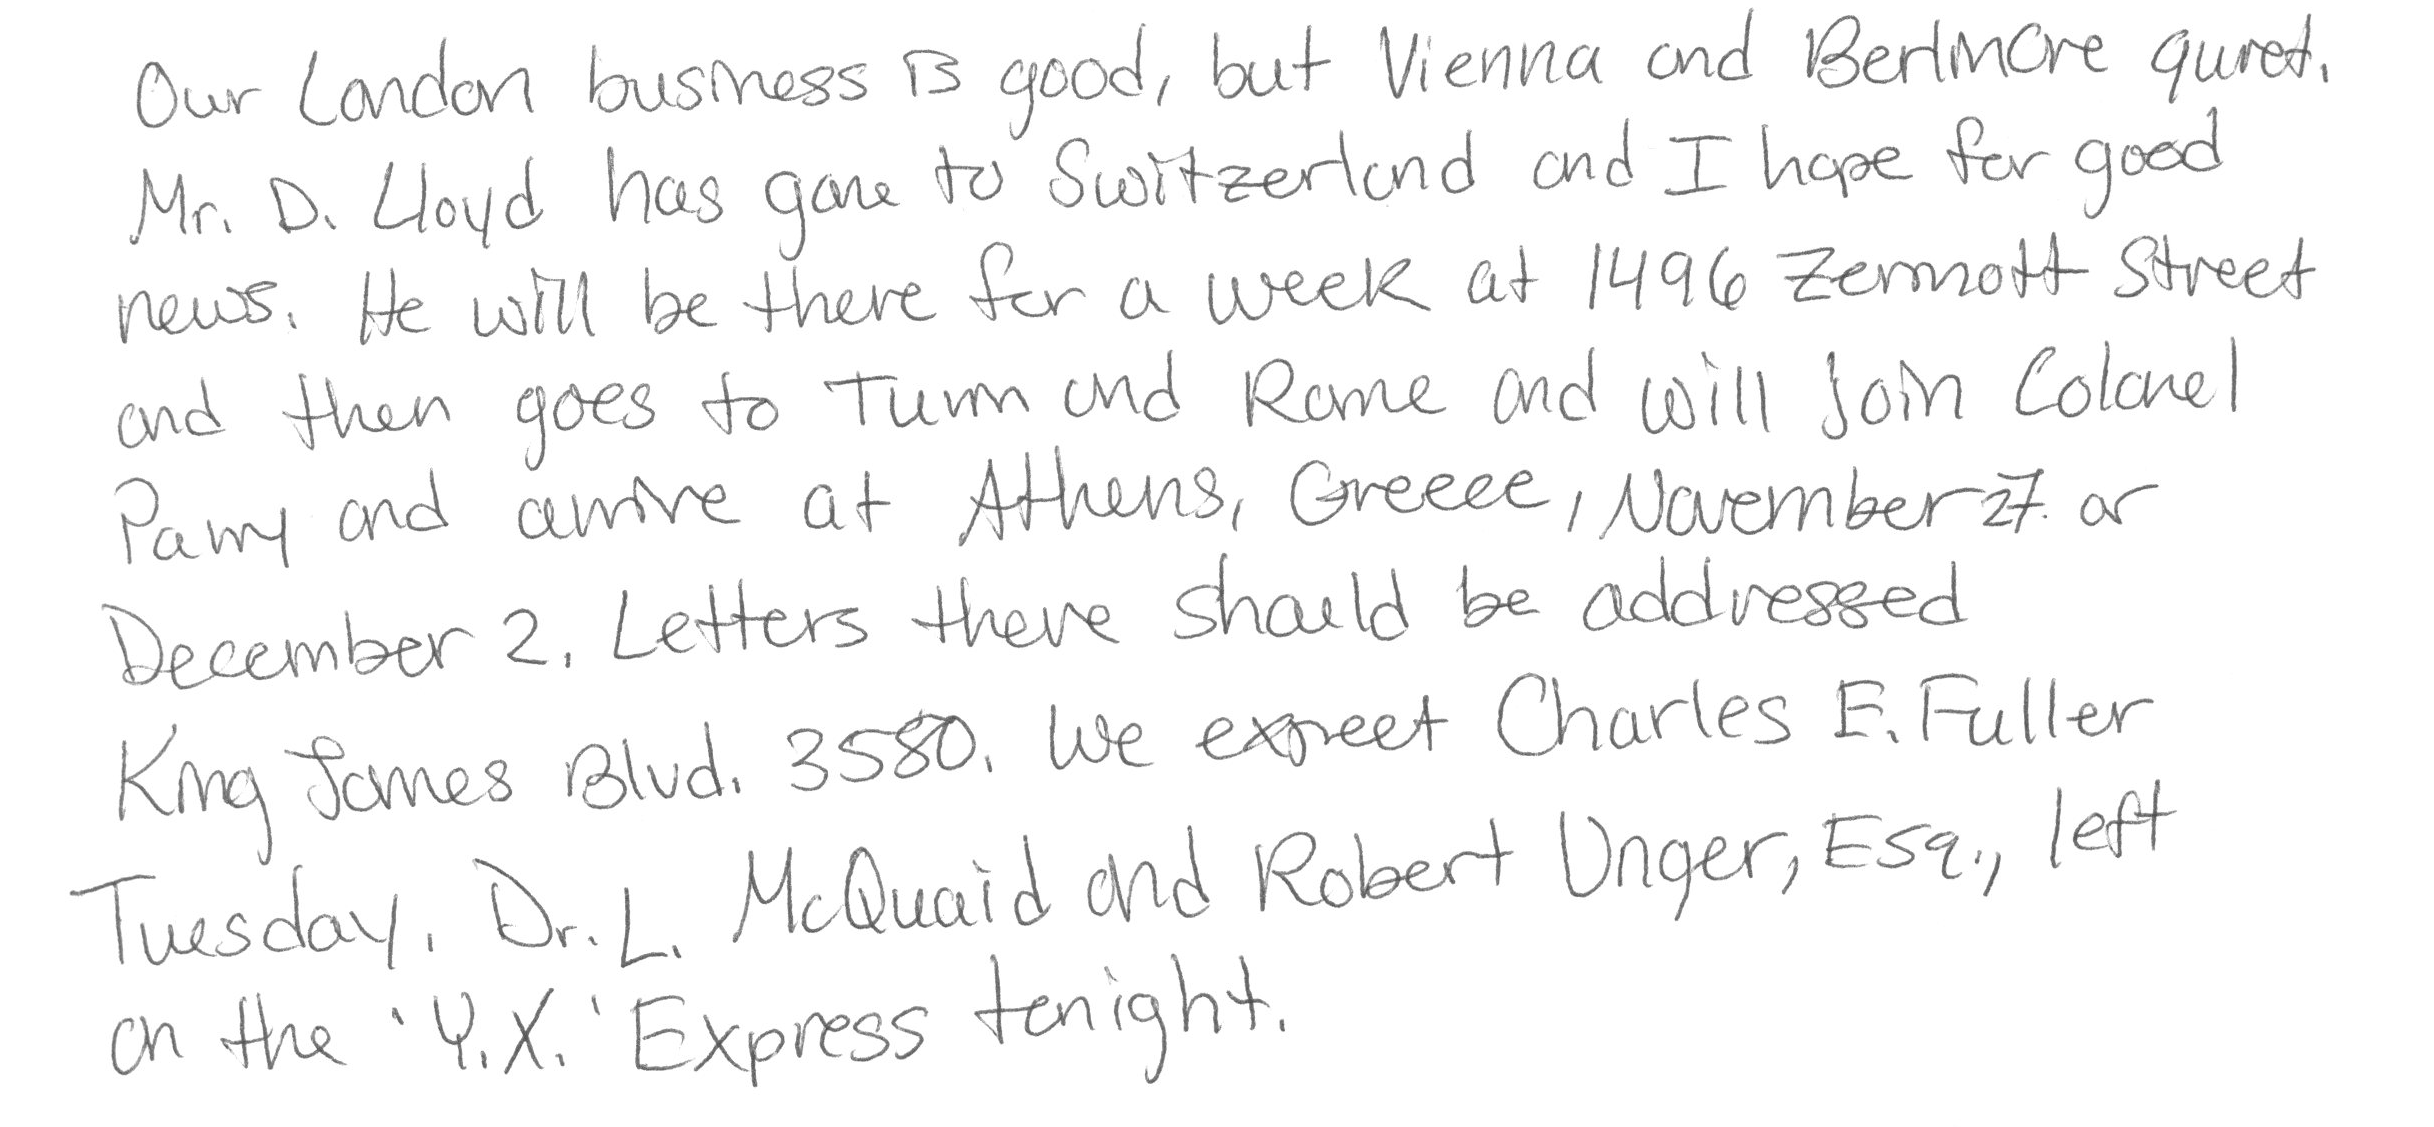 Our London business is good, but Vienna and Berlin are quiet.
Mr. D. Lloyd has gone to Switzerland and I hope for good
news. He will be there for a week at 1496 Zermott Street
and then goes to Turin and Rome and will join Colonel
Parry and arrive at Athens, Greece, November 27. or
December 2. Letters there should be addressed
King James Blvd. 3580. We expect Charles E. Fuller
Tuesday. Dr. L. McQuaid and Robert Unger, Esq., left
on the 'Y.X.' Express tonight.